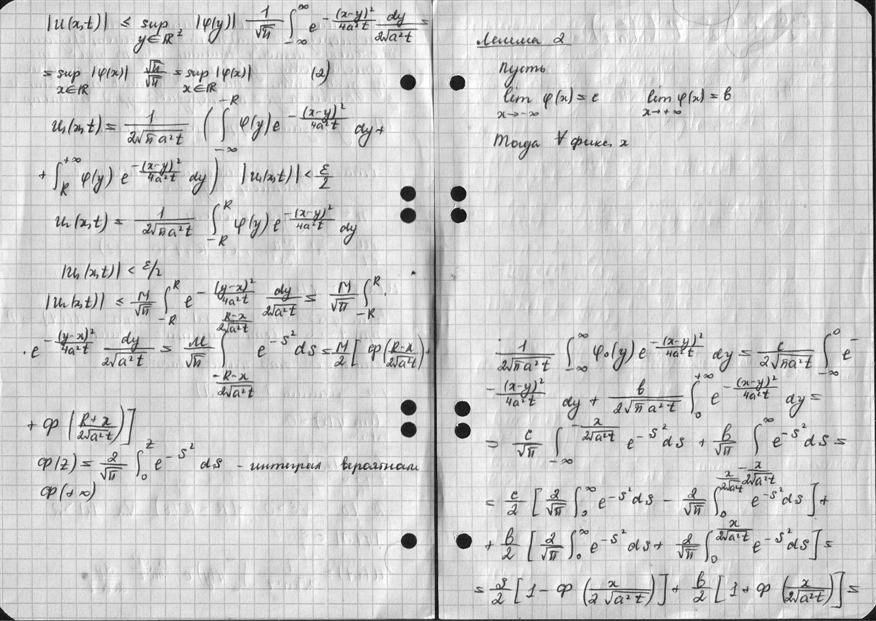 |u(x,t)| ≤ sup_{y∈ℝ²} |φ(y)| 1/√π ∫_{-∞}^{∞} e^{-(x-y)²/4a²t} dy/2√a²t =
= sup_{x∈ℝ} |φ(x)| √π/√π = sup_{x∈ℝ} |φ(x)| (2)
u₁(x,t) = 1/2√πa²t ( ∫_{-∞}^{-R} φ(y) e^{-(x-y)²/4a²t} dy +
+ ∫_{R}^{+∞} φ(y) e^{-(x-y)²/4a²t} dy ) |u₁(x,t)| < ε/2
u₂(x,t) = 1/2√πa²t ∫_{-R}^{R} φ(y) e^{-(x-y)²/4a²t} dy
|u₂(x,t)| < ε/2
|u₂(x,t)| ≤ M/√π ∫_{-R}^{R} e^{-(y-x)²/4a²t} dy/2√a²t = M/√π ∫_{-R}^{R} ·
· e^{-(y-x)²/4a²t} dy/2√a²t = M/√π ∫_{-R-x/2√a²t}^{R-x/2√a²t} e^{-s²} ds = M/2 [ Φ(R-x/2√a²t) +
+ Φ (R+x/2√a²t) ]
Φ(z) = 2/√π ∫_{0}^{z} e^{-s²} ds - интеграл вероятном
Φ(+∞)
Лемма 2
Пусть
lim_{x→-∞} φ(x) = c lim_{x→+∞} φ(x) = b
Тогда ∀ фикс. x
1/2√πa²t ∫_{-∞}^{∞} φ₀(y) e^{-(x-y)²/4a²t} dy = c/2√πa²t ∫_{-∞}^{0} e^{-
-(x-y)²/4a²t} dy + b/2√πa²t ∫_{0}^{+∞} e^{-(x-y)²/4a²t} dy =
= c/√π ∫_{-∞}^{-x/2√a²t} e^{-s²} ds + b/√π ∫_{-x/2√a²t}^{∞} e^{-s²} ds =
= c/2 [ 2/√π ∫_{0}^{∞} e^{-s²} ds - 2/√π ∫_{0}^{x/2√a²t} e^{-s²} ds ] +
+ b/2 [ 2/√π ∫_{0}^{∞} e^{-s²} ds + 2/√π ∫_{0}^{x/2√a²t} e^{-s²} ds ] =
= c/2 [ 1 - Φ (x/2√a²t) ] + b/2 [ 1 + Φ (x/2√a²t) ] =